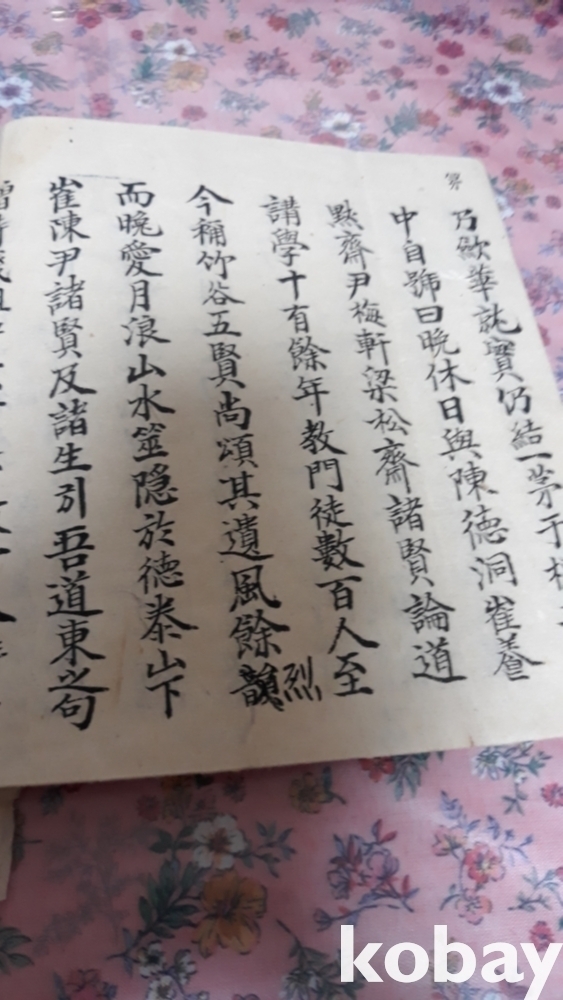 乃歛華就實仍結一茅于
中自號曰晩休日與陳德洞崔養
默齋尹梅軒梁松齋諸賢論道
講學十有餘年敎門徒數百人至
今稱竹谷五賢尚頌其遺風餘韻烈
而晩愛月浪山水筮隠於德泰山下
崔陳尹諸賢及諸生引吾道東之句
kobay